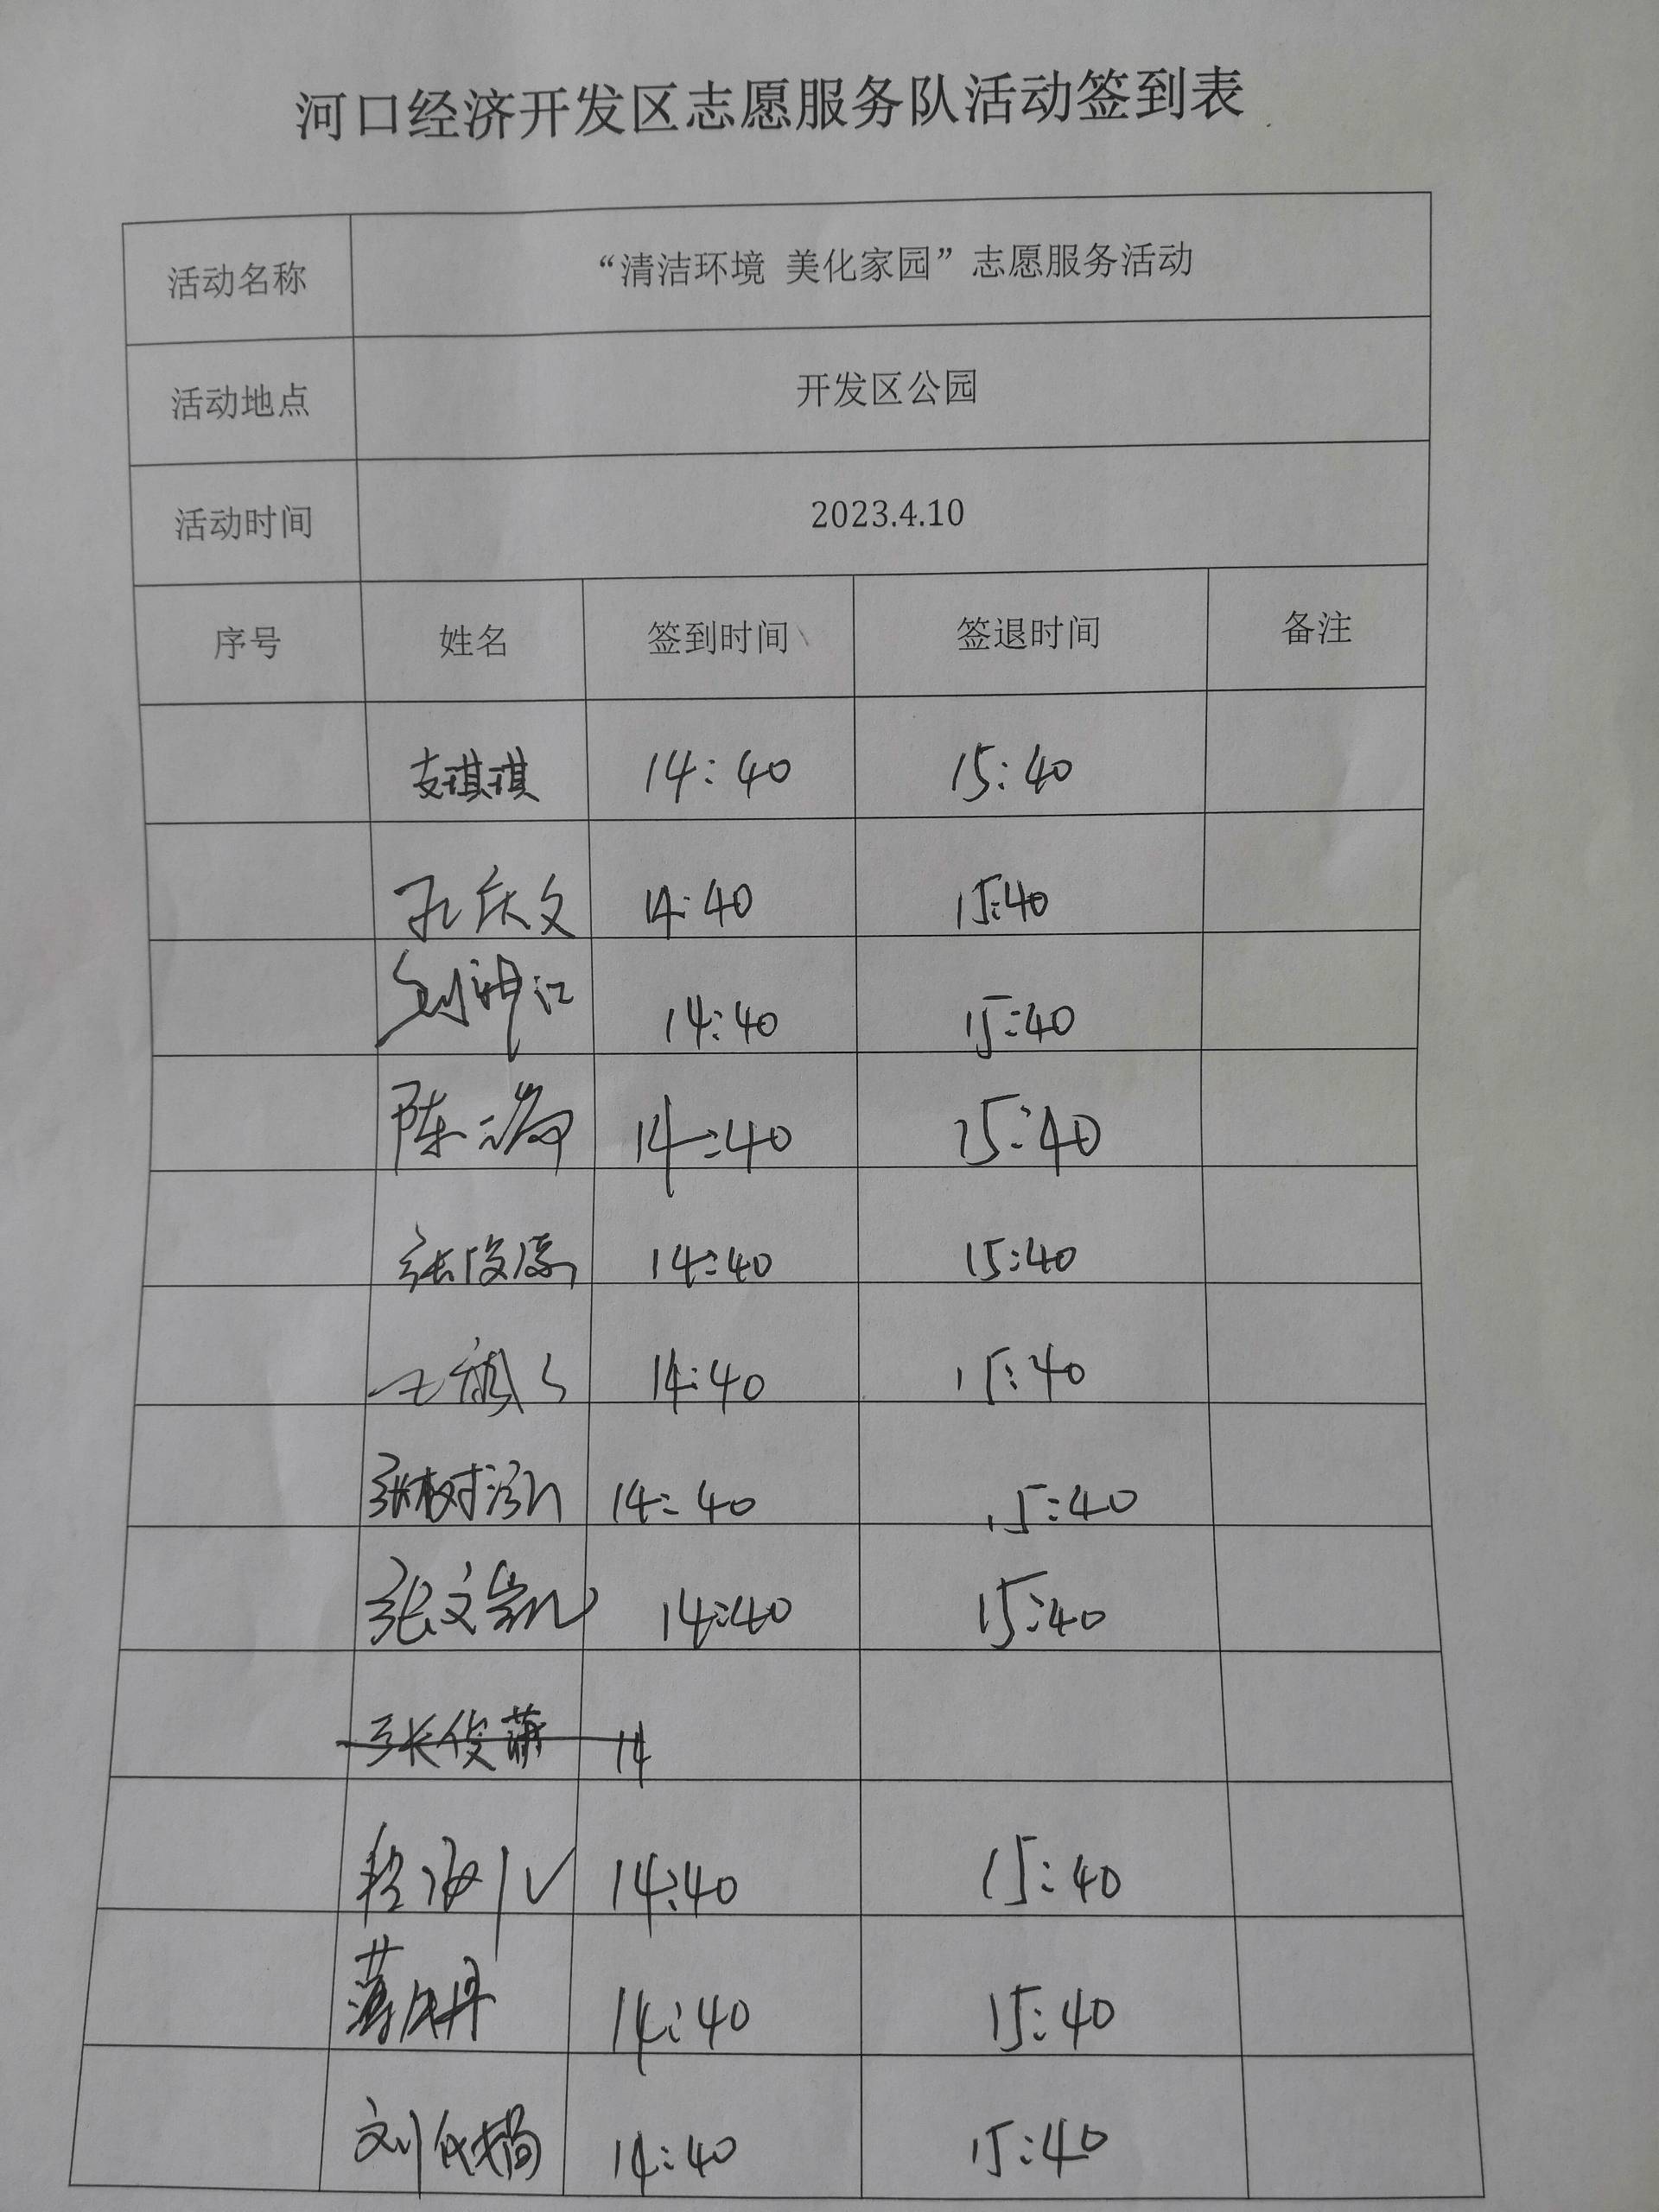 河口经济开发区志愿服务队活动签到表
活动名称 “清洁环境 美化家园”志愿服务活动
活动地点 开发区公园
活动时间 2023.4.10
序号 姓名 签到时间 签退时间 备注
支琪琪 14:40 15:40
孔庆文 14:40 15:40
14:40 15:40
陈 14:40 15:40
张俊 14:40 15:40
14:40 15:40
张树泓 14:40 15:40
张文凯 14:40 15:40
张俊 14
程海 14:40 15:40
薄 丹 14:40 15:40
刘 14:40 15:40